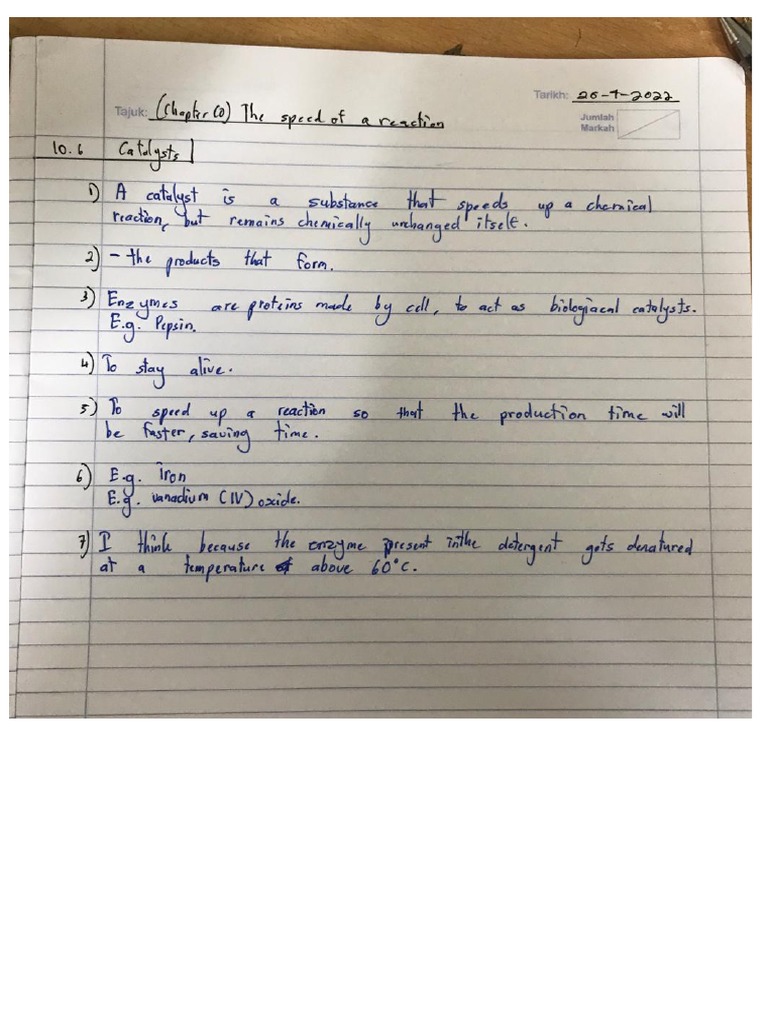 Tarikh: 26-7-2022
Tajuk: (Chapter 10) The speed of a reaction
Jumlah
Markah
10.6 Catalysts
1) A catalyst is a substance that speeds up a chemical
reaction, but remains chemically unchanged itself.
2) - the products that form.
3) Enzymes are proteins made by cell, to act as biologiacal catalysts.
E.g. Pepsin.
4) To stay alive.
5) To speed up a reaction so that the production time will
be faster, saving time.
6) E.g. iron
E.g. vanadium (IV) oxide.
7) I think because the enzyme present inthe detergent gets denatured
at a temperature above 60°C.